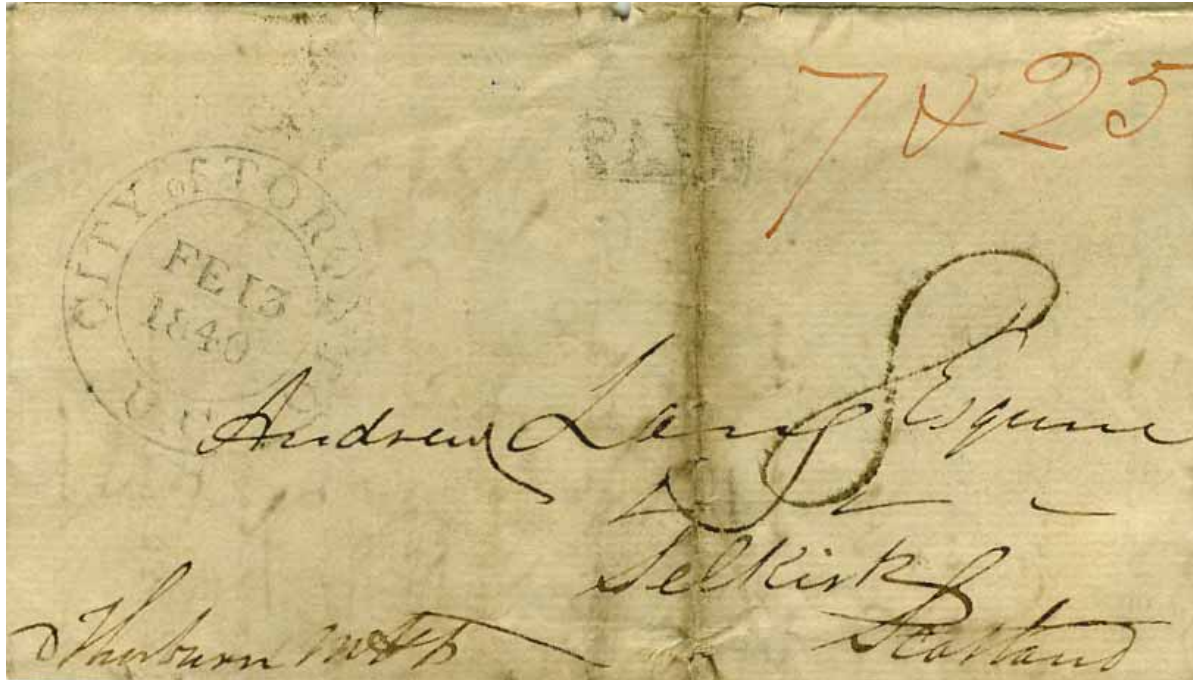 7 & 25
PAID
CITY of TORONTO
FE 13
1840
U.C.
8
Andrew Lang Esquire
Selkirk
Scotland
Thorburn MPP